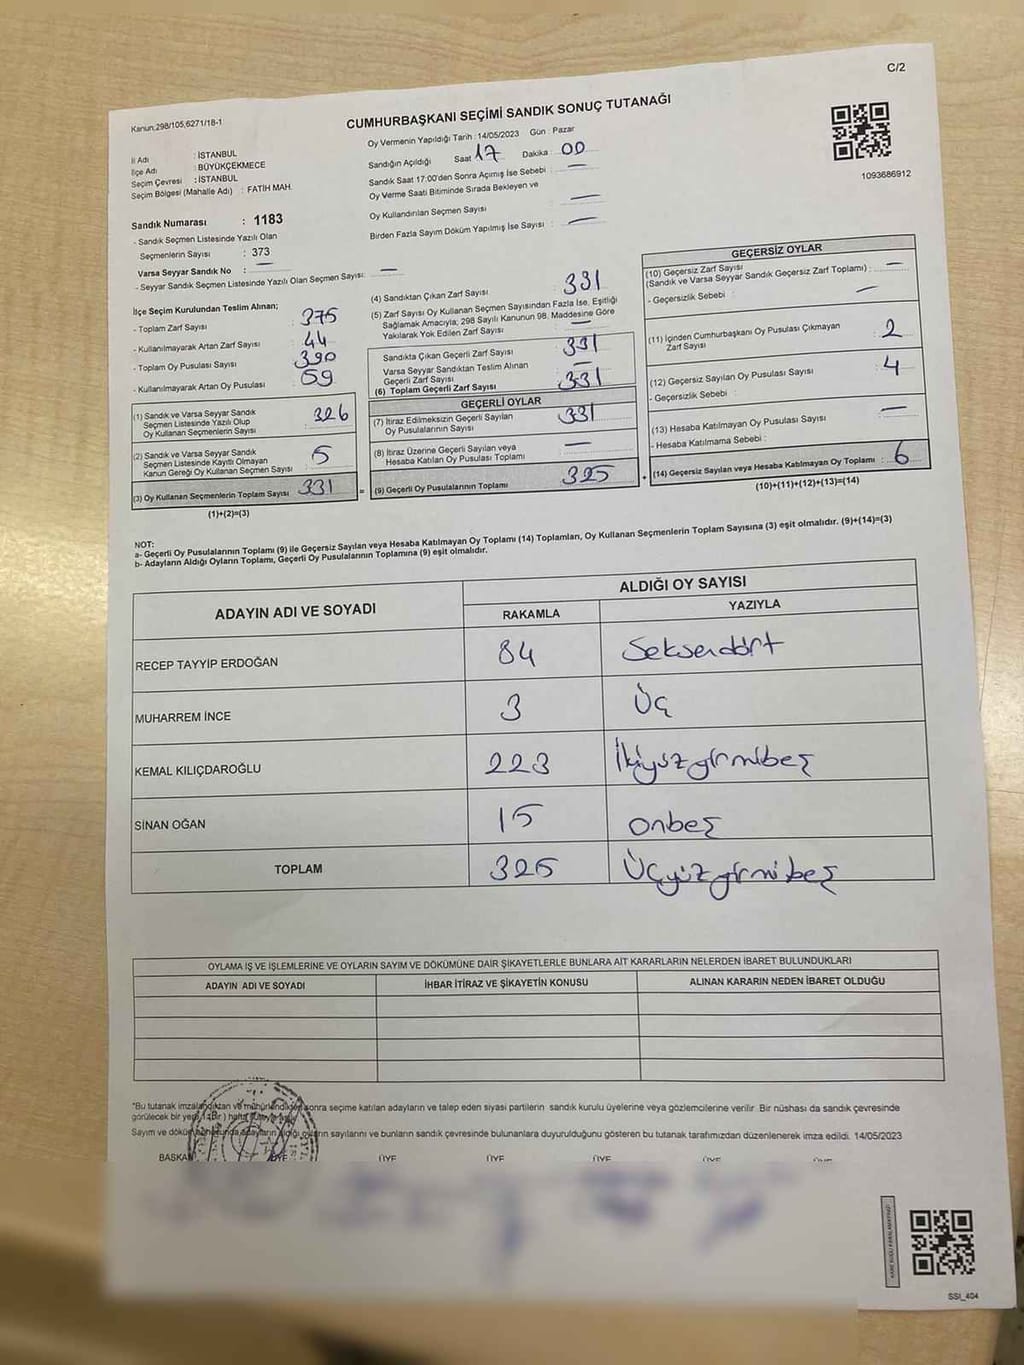 C/2
Kanun;298/105,6271/18-1
CUMHURBAŞKANI SEÇİMİ SANDIK SONUÇ TUTANAĞI
1093686912
İl Adı : İSTANBUL
İlçe Adı : BÜYÜKÇEKMECE
Seçim Çevresi : İSTANBUL
Seçim Bölgesi (Mahalle Adı) : FATİH MAH.
Sandık Numarası : 1183
- Sandık Seçmen Listesinde Yazılı Olan
Seçmenlerin Sayısı : 373
Varsa Seyyar Sandık No : —
- Seyyar Sandık Seçmen Listesinde Yazılı Olan Seçmen Sayısı: —
Oy Vermenin Yapıldığı Tarih : 14/05/2023 Gün : Pazar
Sandığın Açıldığı Saat 17 Dakika : 00
Sandık Saat 17:00'den Sonra Açımış İse Sebebi : —
Oy Verme Saati Bitiminde Sırada Bekleyen ve
Oy Kullandırılan Seçmen Sayısı : —
Birden Fazla Sayım Döküm Yapılmış İse Sayısı : —
İlçe Seçim Kurulundan Teslim Alınan;
- Toplam Zarf Sayısı : 375
- Kullanılmayarak Artan Zarf Sayısı : 44
- Toplam Oy Pusulası Sayısı : 390
- Kullanılmayarak Artan Oy Pusulası : 59
(1) Sandık ve Varsa Seyyar Sandık
Seçmen Listesinde Yazılı Olup
Oy Kullanan Seçmenlerin Sayısı : 326
(2) Sandık ve Varsa Seyyar Sandık
Seçmen Listesinde Kayıtlı Olmayan
Kanun Gereği Oy Kullanan Seçmen Sayısı : 5
(3) Oy Kullanan Seçmenlerin Toplam Sayısı : 331
(1)+(2)=(3)
(4) Sandıktan Çıkan Zarf Sayısı : 331
(5) Zarf Sayısı Oy Kullanan Seçmen Sayısından Fazla İse, Eşitliği
Sağlamak Amacıyla; 298 Sayılı Kanunun 98. Maddesine Göre
Yakılarak Yok Edilen Zarf Sayısı : —
Sandıkta Çıkan Geçerli Zarf Sayısı : 331
Varsa Seyyar Sandıktan Teslim Alınan
Geçerli Zarf Sayısı : —
(6) Toplam Geçerli Zarf Sayısı : 331
GEÇERLİ OYLAR
(7) İtiraz Edilmeksizin Geçerli Sayılan
Oy Pusulalarının Sayısı : 331
(8) İtiraz Üzerine Geçerli Sayılan veya
Hesaba Katılan Oy Pusulası Toplamı : —
= (9) Geçerli Oy Pusulalarının Toplamı : 325 +
GEÇERSİZ OYLAR
(10) Geçersiz Zarf Sayısı
(Sandık ve Varsa Seyyar Sandık Geçersiz Zarf Toplamı) : —
- Geçersizlik Sebebi : —
(11) İçinden Cumhurbaşkanı Oy Pusulası Çıkmayan
Zarf Sayısı : 2
(12) Geçersiz Sayılan Oy Pusulası Sayısı : 4
- Geçersizlik Sebebi :
(13) Hesaba Katılmayan Oy Pusulası Sayısı : —
- Hesaba Katılmama Sebebi :
(14) Geçersiz Sayılan veya Hesaba Katılmayan Oy Toplamı : 6
(10)+(11)+(12)+(13)=(14)
NOT:
a- Geçerli Oy Pusulalarının Toplamı (9) ile Geçersiz Sayılan veya Hesaba Katılmayan Oy Toplamı (14) Toplamları, Oy Kullanan Seçmenlerin Toplam Sayısına (3) eşit olmalıdır. (9)+(14)=(3)
b- Adayların Aldığı Oyların Toplamı, Geçerli Oy Pusulalarının Toplamına (9) eşit olmalıdır.
ADAYIN ADI VE SOYADI
ALDIĞI OY SAYISI
RAKAMLA YAZIYLA
RECEP TAYYİP ERDOĞAN 84 Seksendört
MUHARREM İNCE 3 Üç
KEMAL KILIÇDAROĞLU 223 İkiyüzyirmibeş
SİNAN OĞAN 15 onbeş
TOPLAM 325 Üçyüzyirmibeş
OYLAMA İŞ VE İŞLEMLERİNE VE OYLARIN SAYIM VE DÖKÜMÜNE DAİR ŞİKAYETLERLE BUNLARA AİT KARARLARIN NELERDEN İBARET BULUNDUKLARI
ADAYIN ADI VE SOYADI İHBAR İTİRAZ VE ŞİKAYETİN KONUSU ALINAN KARARIN NEDEN İBARET OLDUĞU
"Bu tutanak imzalandıktan ve mühürlendikten sonra seçime katılan adayların ve talep eden siyasi partilerin sandık kurulu üyelerine veya gözlemcilerine verilir. Bir nüshası da sandık çevresinde
görülecek bir yere (Bir) hafta
Sayım ve döküm sonucunda adayların aldığı oyların sayılarını ve bunların sandık çevresinde bulunanlara duyurulduğunu gösteren bu tutanak tarafımızdan düzenlenerek imza edildi. 14/05/2023
BAŞKAN ÜYE ÜYE ÜYE ÜYE ÜYE ÜYE
SSI_404